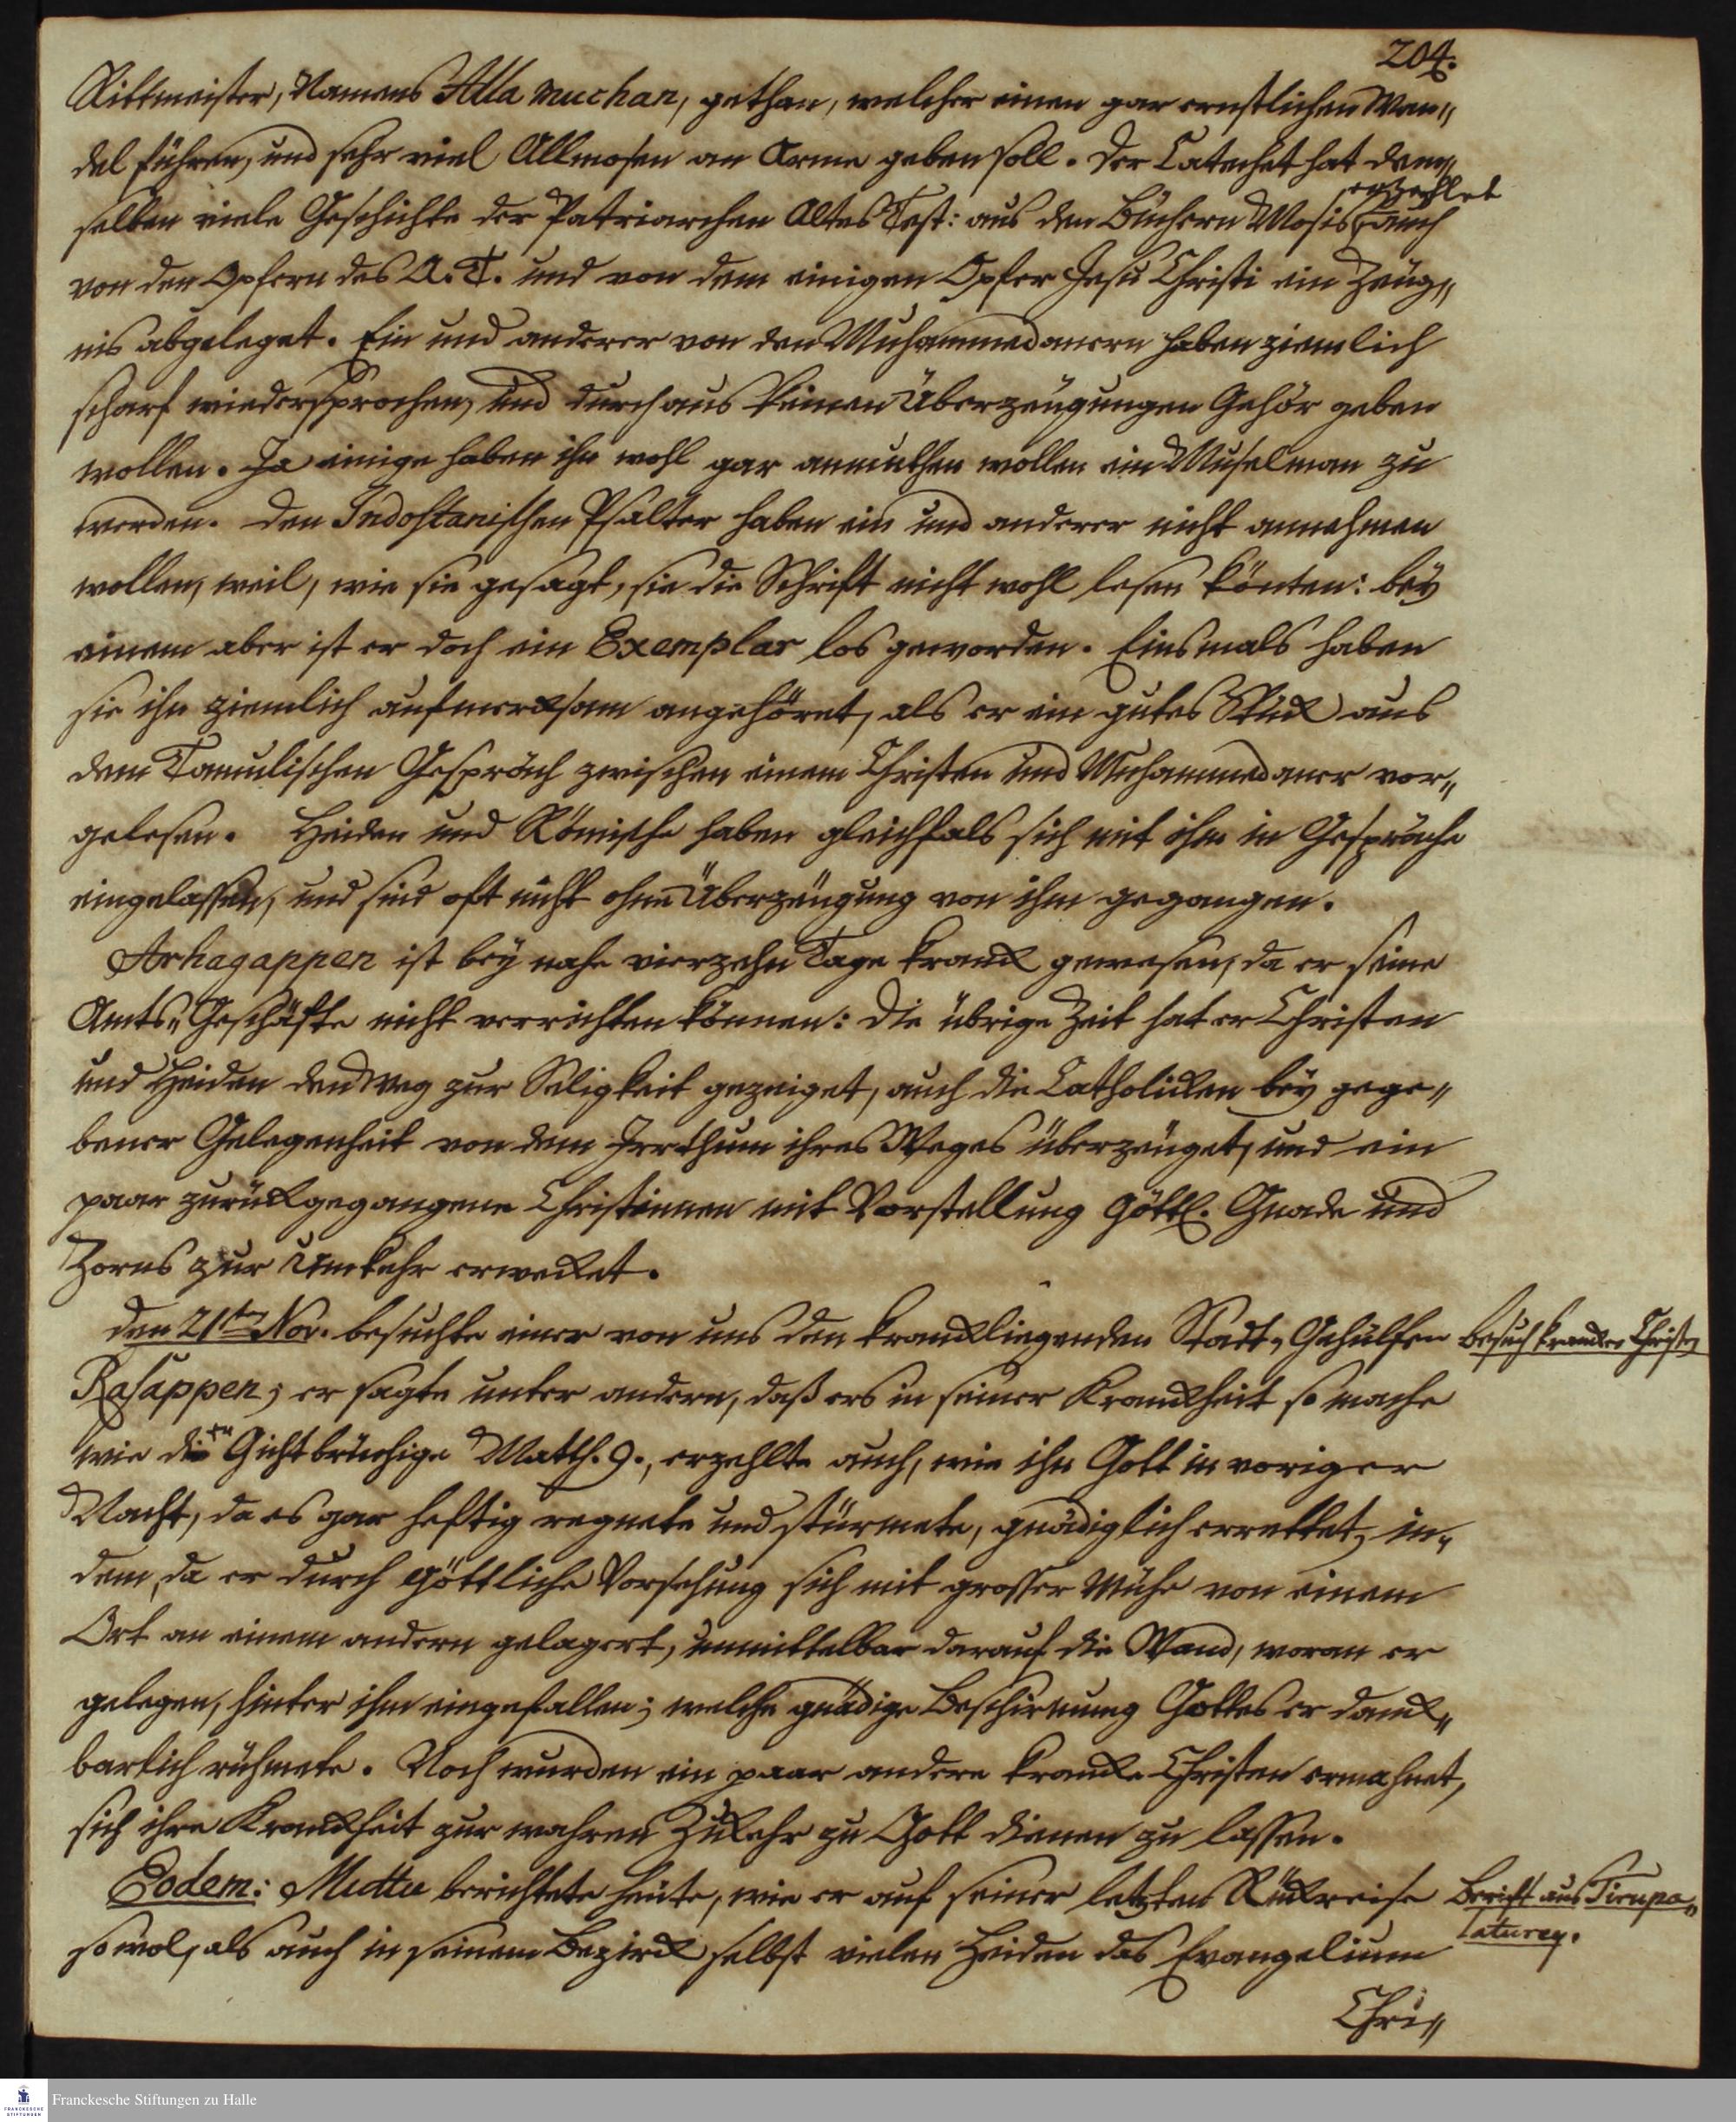 204.
Rittmeister, Namens Alla muchan, gethan, welcher einen gar ernstlichen Wan„
del führen, und sehr viel Allmosen an Arme geben soll. Der Catechet hat dem„
erzehlet
selben viele Geschichte der Patriarchen Altes Test: aus den Büchern Mosis, auch
von den Opfern des A. T. und von dem einigen Opfer Jesu Christi ein Zeug„
nis abgeleget. Ein und anderer von den Muhammedanern haben ziemlich
scharf wiedersprochen, und durchaus keinen Überzeugungen Gehör geben
wollen. Ja einige haben ihn wohl gar anmuthen wollen ein Muselman zu
werden. Den Indostanischen Psalter haben ein und anderer nicht annehmen
wollen, weil, wie sie gesagt, sie die Schrift nicht wohl lesen könten: bey
einem aber ist er doch ein Exemplar los geworden. Einsmals haben
sie ihn ziemlich aufmercksam angehöret, als er ein gutes Stück aus
dem Tamulischen Gespräch zwischen einem Christen und Muhammedaner vor„
gelesen. Heiden und Römische haben gleichfals sich mit ihm in Gespräche
eingelassen, und sind oft nicht ohne Überzeugung von ihm gegangen.
Arhagappen ist bey nahe vierzehn Tage kranck gewesen, da er seine
Amts„Geschäfte nicht verrichten können: Die übrige Zeit hat er Christen
und Heiden den Weg zur Seligkeit gezeiget, auch die Catholicken bey gege„
bener Gelegenheit von dem Irrthum ihres Weges überzeuget, und ein
paar zurückgegangene Christinnen mit Vorstellung Göttl. Gnade und
Zorns zur Umkehr erwecket.
den 21ten Nov. besuchte einer von uns den kranckliegenden Stadt„Gehülfen
Besuch krancker Christen
Rasappen; er sagte unter andern, daß ers in seiner Kranckheit so mache
wie der Gichtbrüchige Matth. 9., erzehlte auch, wie ihn Gott in voriger
Nacht, da es gar heftig regnete und stürmete, gnädiglich errettet, in„
dem, da er durch Göttliche Vorsehung sich mit grosser Mühe von einem
Ort an einem andern gelagert, unmittelbar darauf die Wand, woran er
gelegen, hinter ihm eingefallen; welche gnädige Beschirmung Gottes er danck„
barlich rühmete. Noch wurden ein paar andere krancke Christen ermahnet,
sich ihre Kranckheit zur wahren Zukehr zu Gott dienen zu lassen.
Eodem: Muttu berichtete heute, wie er auf seiner letzten Rückreise
Bericht aus Tirupa„
laturey.
sowol, als auch in seinem Bezirck selbst vielen Heiden das Evangelium
Chri„
Franckesche Stiftungen zu Halle
FRANCKESCHE
STIFTUNGEN